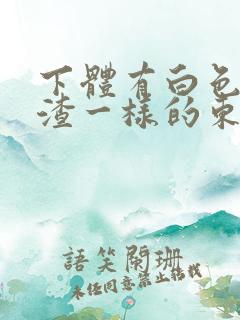 下體有白色
渣一樣的東
語笑闌珊
未经同意禁止转载